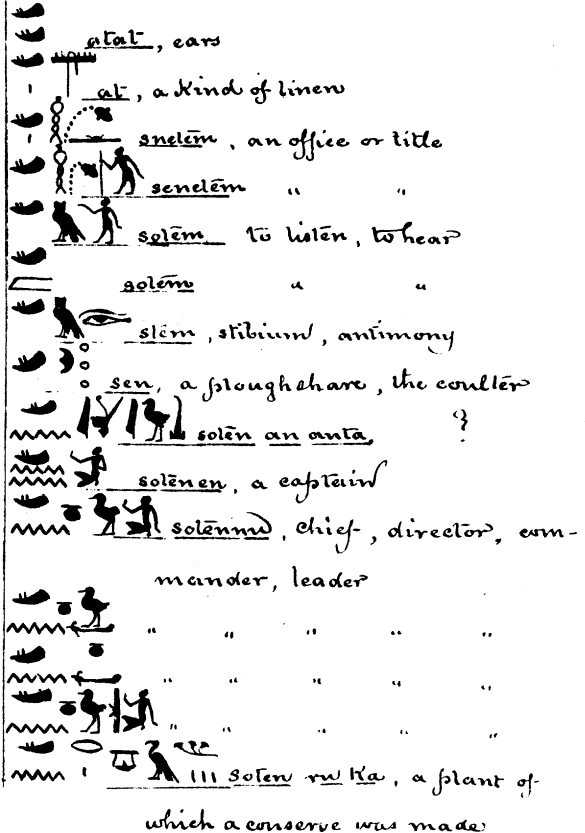 atat, ears
at, a kind of linen
snetēm, an office or title
senetēm " "
sotēm to listen, to hear
sotēm " "
stēm, stibium, antimony
sen, a ploughshare, the coulter
soten an anta, ?
sotenen, a captain
sotennu, chief, director, com-
mander, leader
" " " " "
" " " " "
" " " " "
soten ru ka, a plant of
which a conserve was made